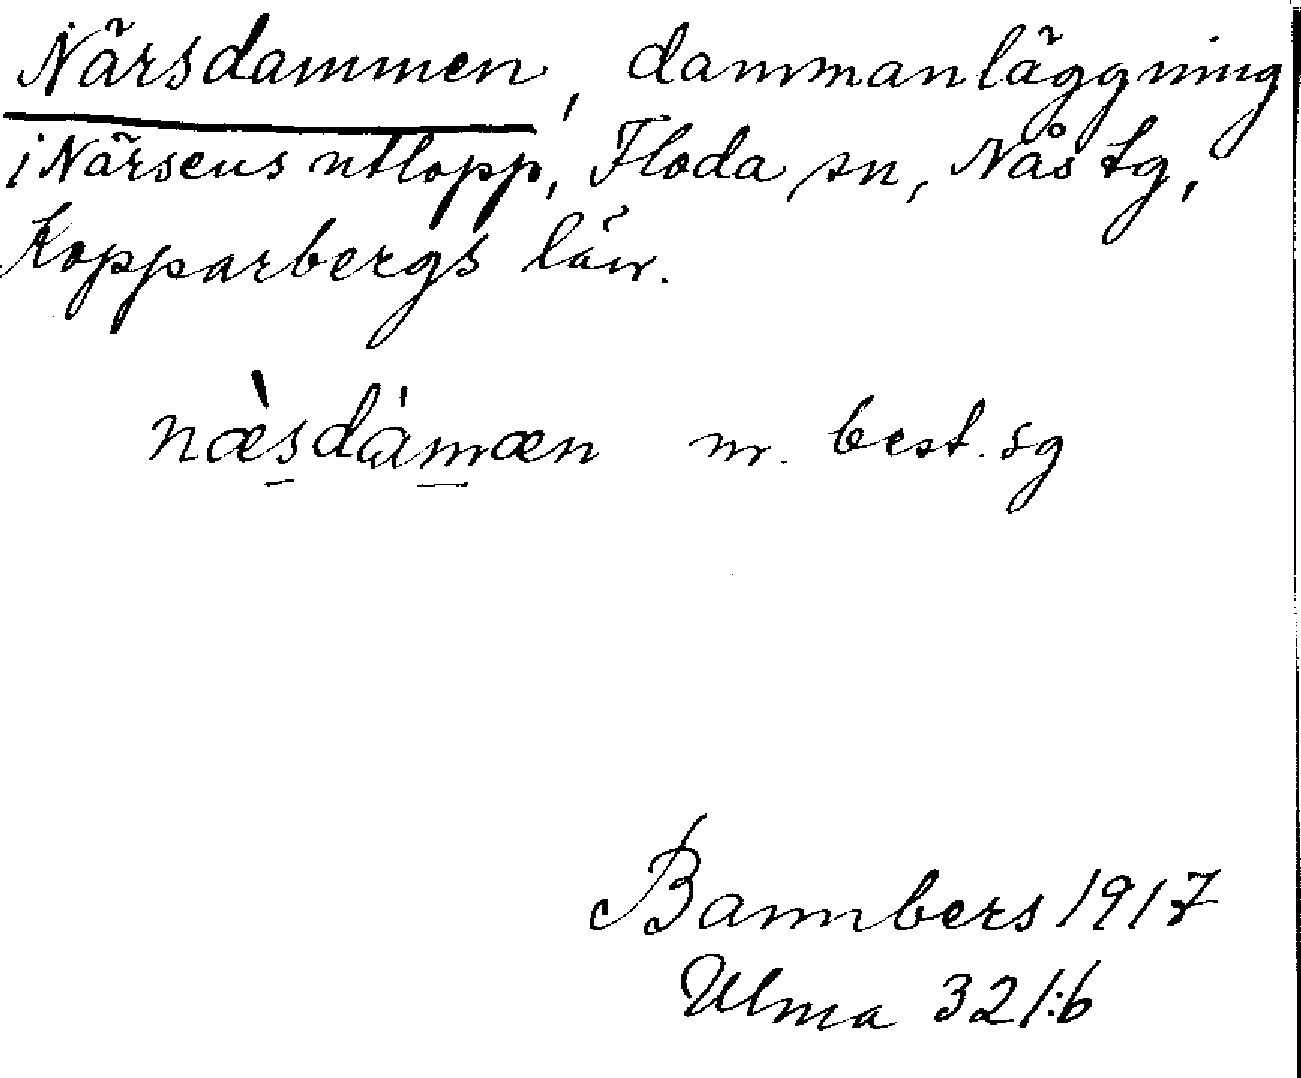 Närsdammen, dammanläggning
i Närsens utlopp, Floda sn, Nås tg,
Kopparbergs län.
næ̀sdámæn m. best. sg
Bannbers 1917
Ulma 321:6